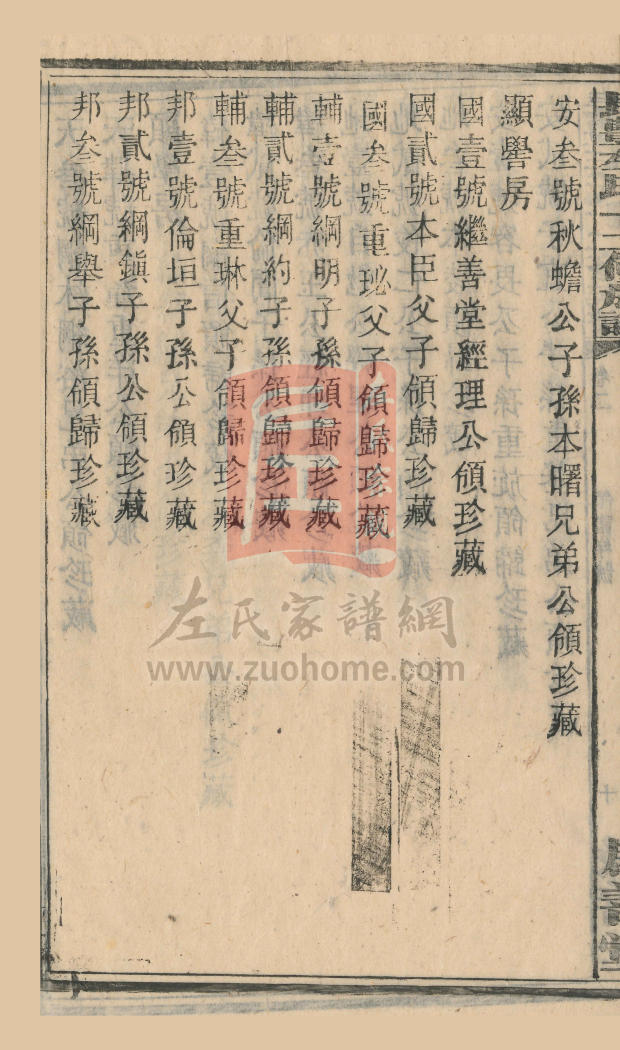 安叁號秋蟾公子孫本曙兄弟公領珍藏
顯譽房
國壹號繼善堂經理公領珍藏
國貳號本臣父子領歸珍藏
國叁號重珌父子領歸珍藏
輔壹號綱明子孫領歸珍藏
輔貳號綱約子孫領歸珍藏
輔叁號重琳父子領歸珍藏
邦壹號倫垣子孫公領珍藏
邦貳號綱鎮子孫公領珍藏
邦叁號綱舉子孫領歸珍藏
左氏家譜網
www.zuohome.com